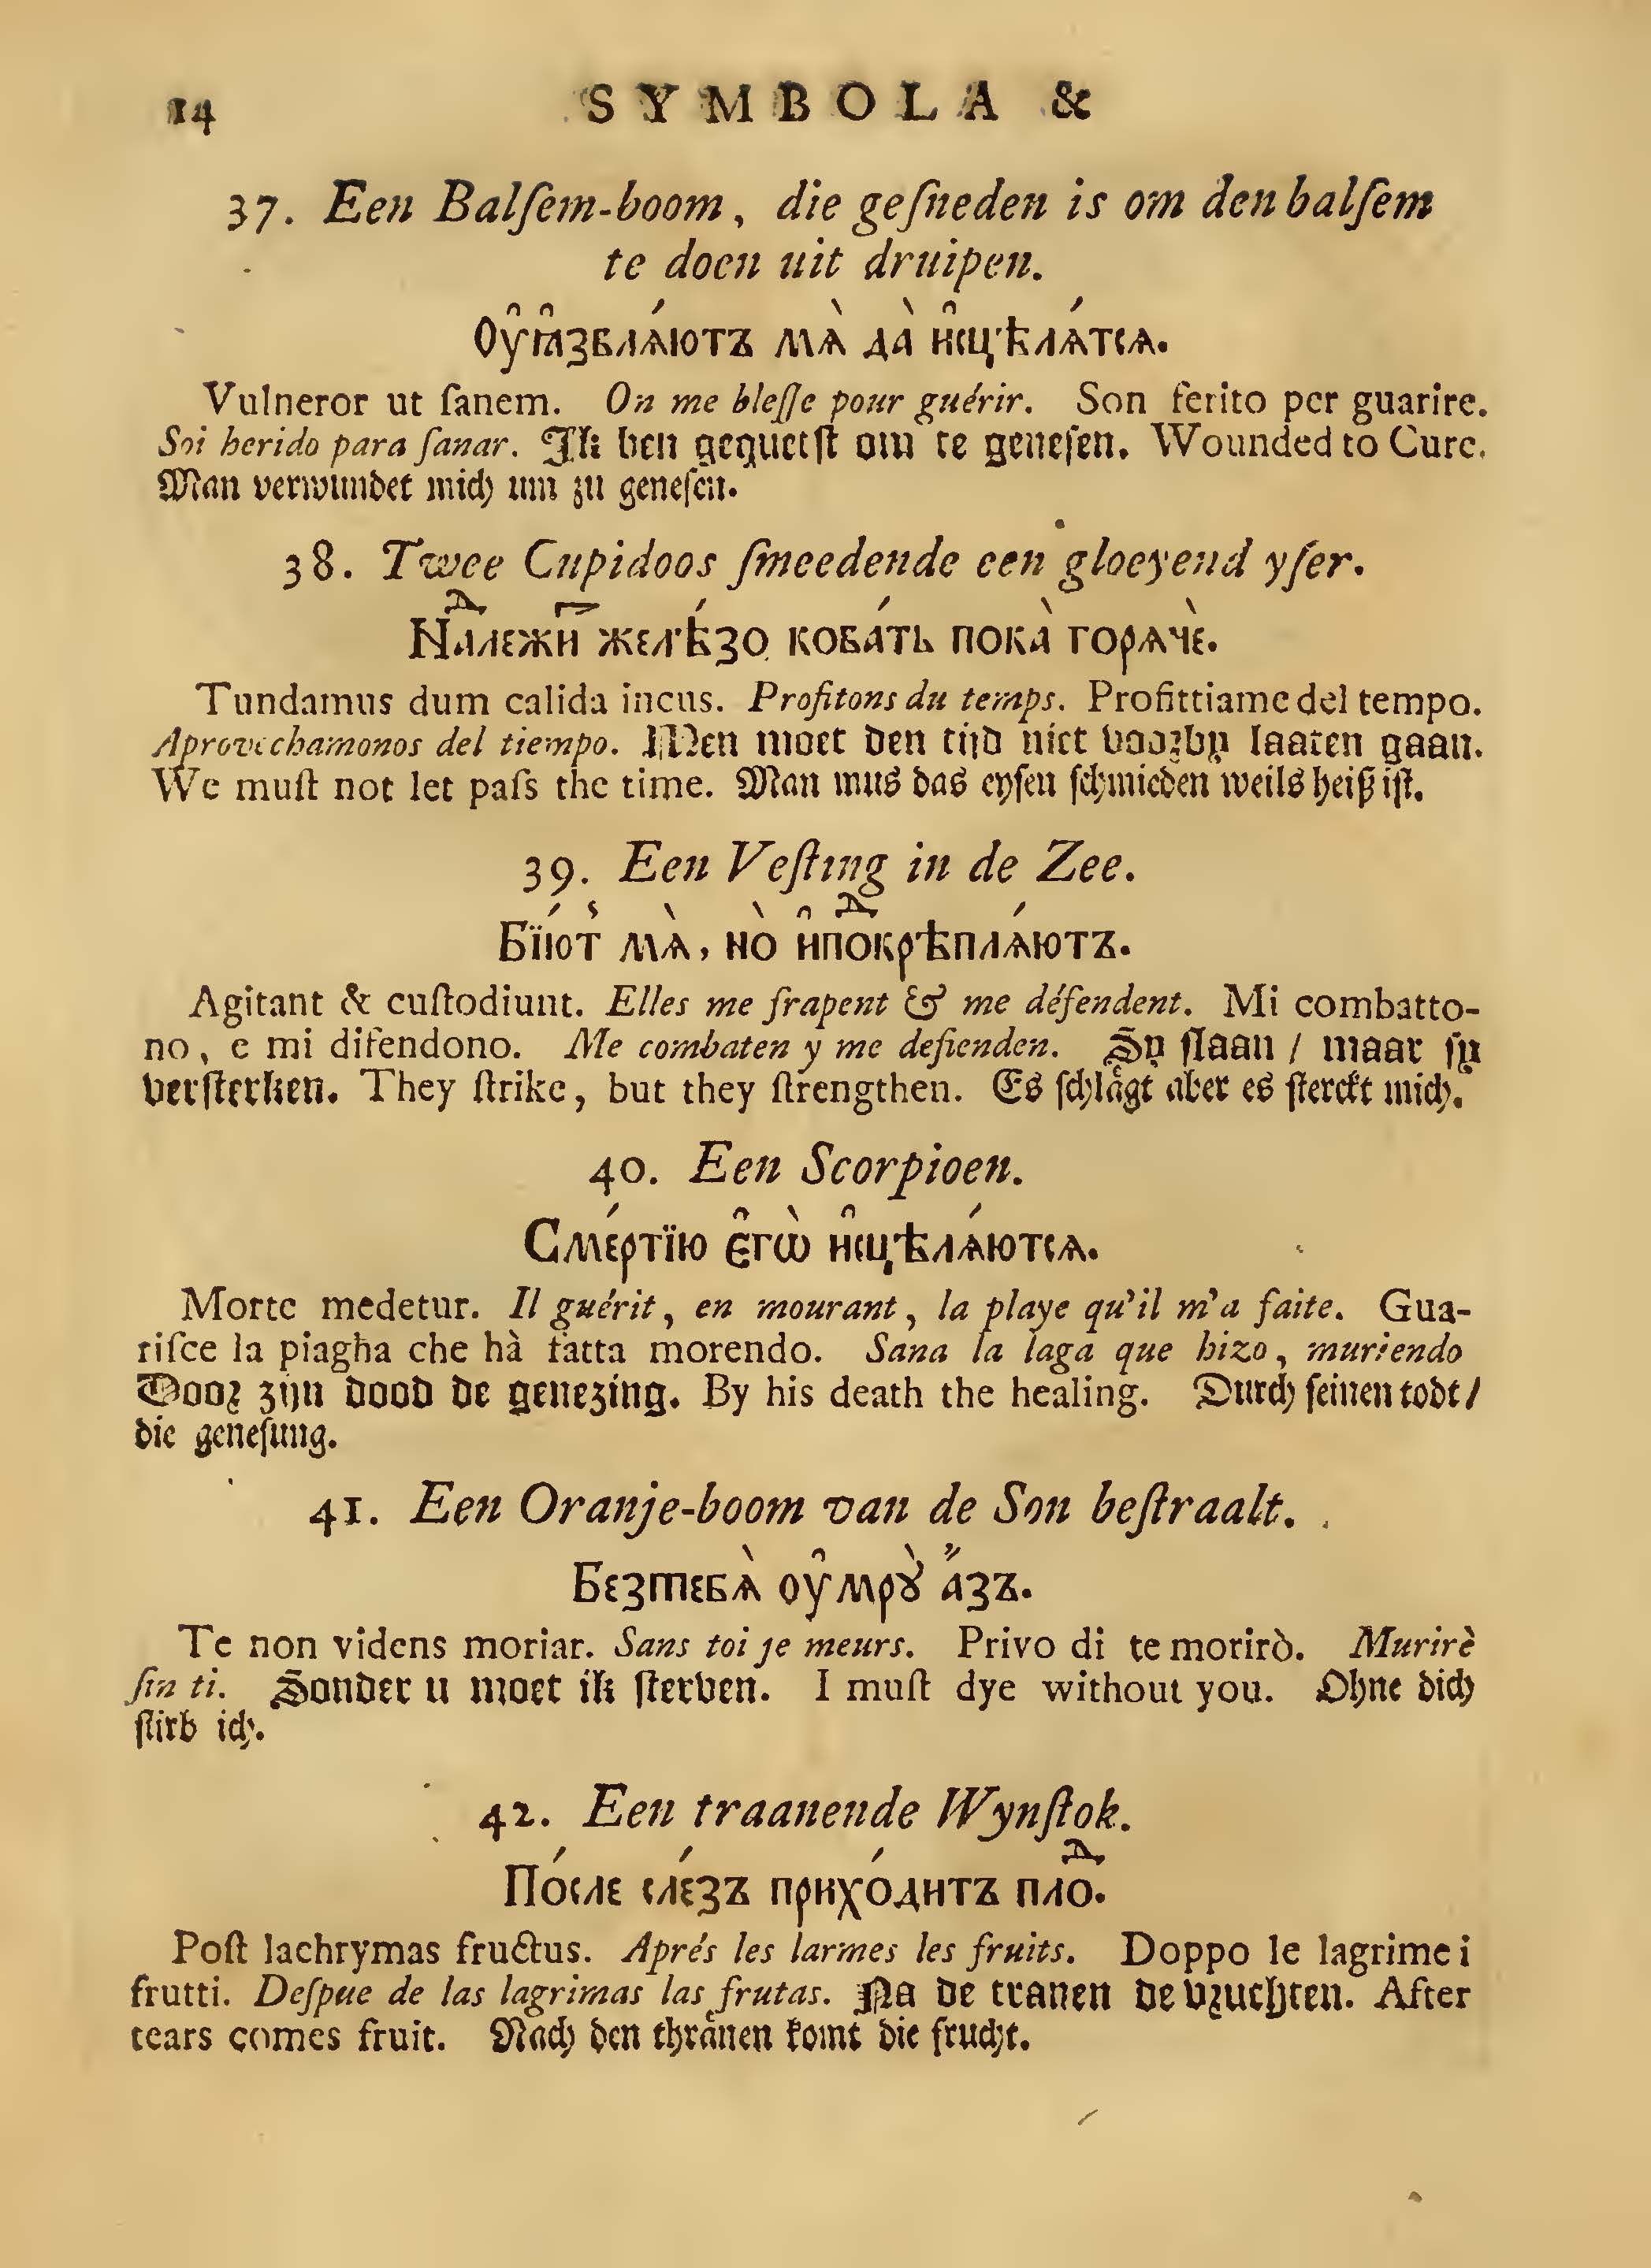 14 SYMBOLA &
37. Een Balſem-boom, die geſneden is om den balſem
te doen uit druipen.
Оу҆ꙗ҆звлѧ́ютъ мѧ̀ да̀ и҆сцѣлѧ́тсѧ.
Vulneror ut ſanem. On me bleſſe pour guérir. Son ferito per guarire.
Soi herido para ſanar. Ik ben gequetſt om te geneſen. Wounded to Cure.
Man verwundet mich um zu geneſen.
38. Twee Cupidoos ſmeedende een gloeyend yſer.
Наⷣлежиⷮ желѣ́зо кова́ть пока̀ горѧчѐ.
Tundamus dum calida incus. Profitons du temps. Profittiame del tempo.
Aprovechamonos del tiempo. Men moet den tijd niet voorby laaten gaan.
We muſt not let paſs the time. Man mus das eyſen ſchmieden weils heiß iſt.
39. Een Veſting in de Zee.
Бїю́т мѧ̀, но̀ и҆поⷣкрѣплѧ́ютъ.
Agitant & cuſtodiunt. Elles me frapent & me défendent. Mi combatto-
no, e mi difendono. Me combaten y me defienden. Sy ſlaan / maar ſy
verſterken. They ſtrike, but they ſtrengthen. Es ſchlaͤgt aber es ſterckt mich.
40. Een Scorpioen.
Сме́ртїю є҆гѡ̀ и҆сцѣлѧ́ютсѧ.
Morte medetur. Il guérit, en mourant, la playe qu'il m'a faite. Gua-
riſce la piagha che hà fatta morendo. Sana la laga que hizo, muriendo
Door zijn dood de genezing. By his death the healing. Durch ſeinen todt /
die geneſung.
41. Een Oranje-boom van de Son beſtraalt.
Безтебѧ̀ оу҆мрꙋ̀ а҆́зъ.
Te non videns moriar. Sans toi je meurs. Privo di te morirò. Murirè
ſin ti. Sonder u moet ik ſterven. I muſt dye without you. Ohne dich
ſtirb ich.
42. Een traanende Wynſtok.
По́сле сле́зъ прихо́дитъ плоⷣ.
Poſt lachrymas fructus. Aprés les larmes les fruits. Doppo le lagrime i
frutti. Deſpue de las lagrimas las frutas. Na de tranen de vruchten. After
tears comes fruit. Nach den thraͤnen komt die frucht.